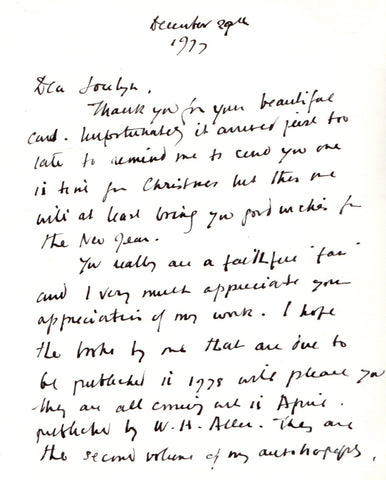 December 29th
1977
Dear Jocelyn,
Thank you for your beautiful
card. Unfortunately it arrived just too
late to remind me to send you one
in time for Christmas but this one
will at least bring you good wishes for
the New Year.
You really are a faithful "fan"
and I very much appreciate your
appreciation of my work. I hope
the books by me that are due to
be published in 1978 will please you
They are all coming out in April.
published by W. H. Allen. They are
the second volume of my autobiography,